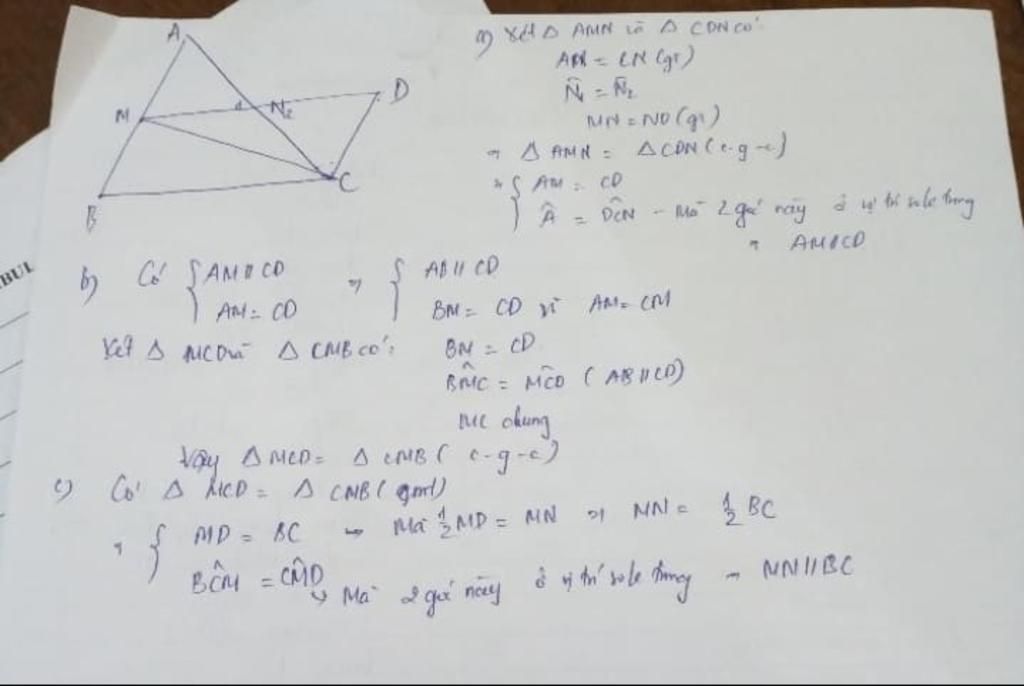 A
M
1
N2
D
B
C
BUL
a) Xét Δ AMN và Δ CDN có:
AN = CN (gt)
N̂1 = N̂2
MN = ND (gt)
⇒ Δ AMN = Δ CDN (c-g-c)
⇒ { AM = CD
Â = DĈN - Mà 2 góc này ở vị trí sole trong
⇒ AM // CD
b) Có { AM // CD ⇒ { AB // CD
AM = CD BM = CD vì AM = CM
Xét Δ MCD và Δ CMB có: BM = CD
BM̂C = MĈD (AB // CD)
MC chung
Vậy Δ MCD = Δ CMB (c-g-c)
c) Có Δ MCD = Δ CMB (cmt)
⇒ { MD = BC → Mà 1/2 MD = MN ⇒ MN = 1/2 BC
BĈM = CM̂D → Mà 2 góc này ở vị trí sole trong → MN // BC